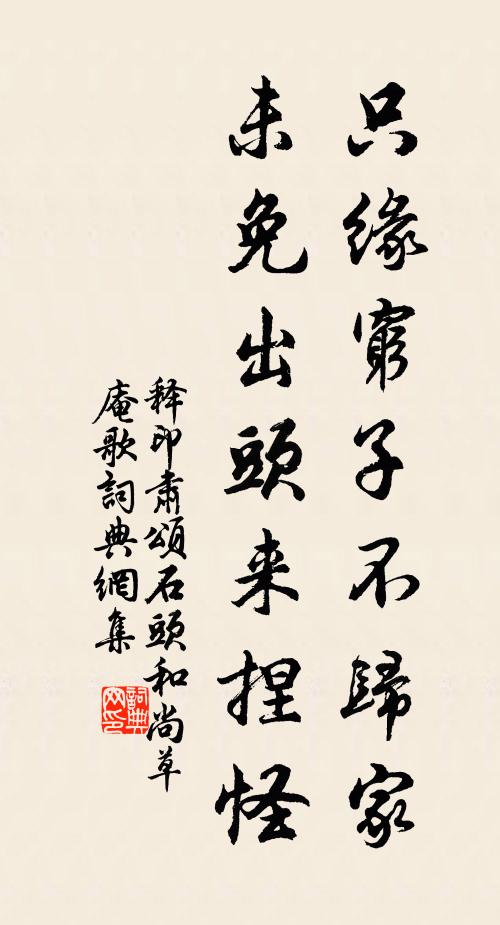 只缘窮子不歸家
未免出頭来捏怪
释印肃頌石頭和尚草
庵歌詞典網集
詞典网印